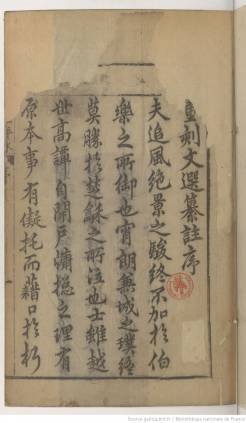 重刻文選纂註序
夫追風絶景之駿終不加於伯
樂之所御也宵朗兼城之璞終
莫勝於楚龢之所泣也士雖越
世高譚自開戶牖摠之理有
原本事有儗托而藉口於朽
Source gallica.bnf.fr / Bibliothèque nationale de France